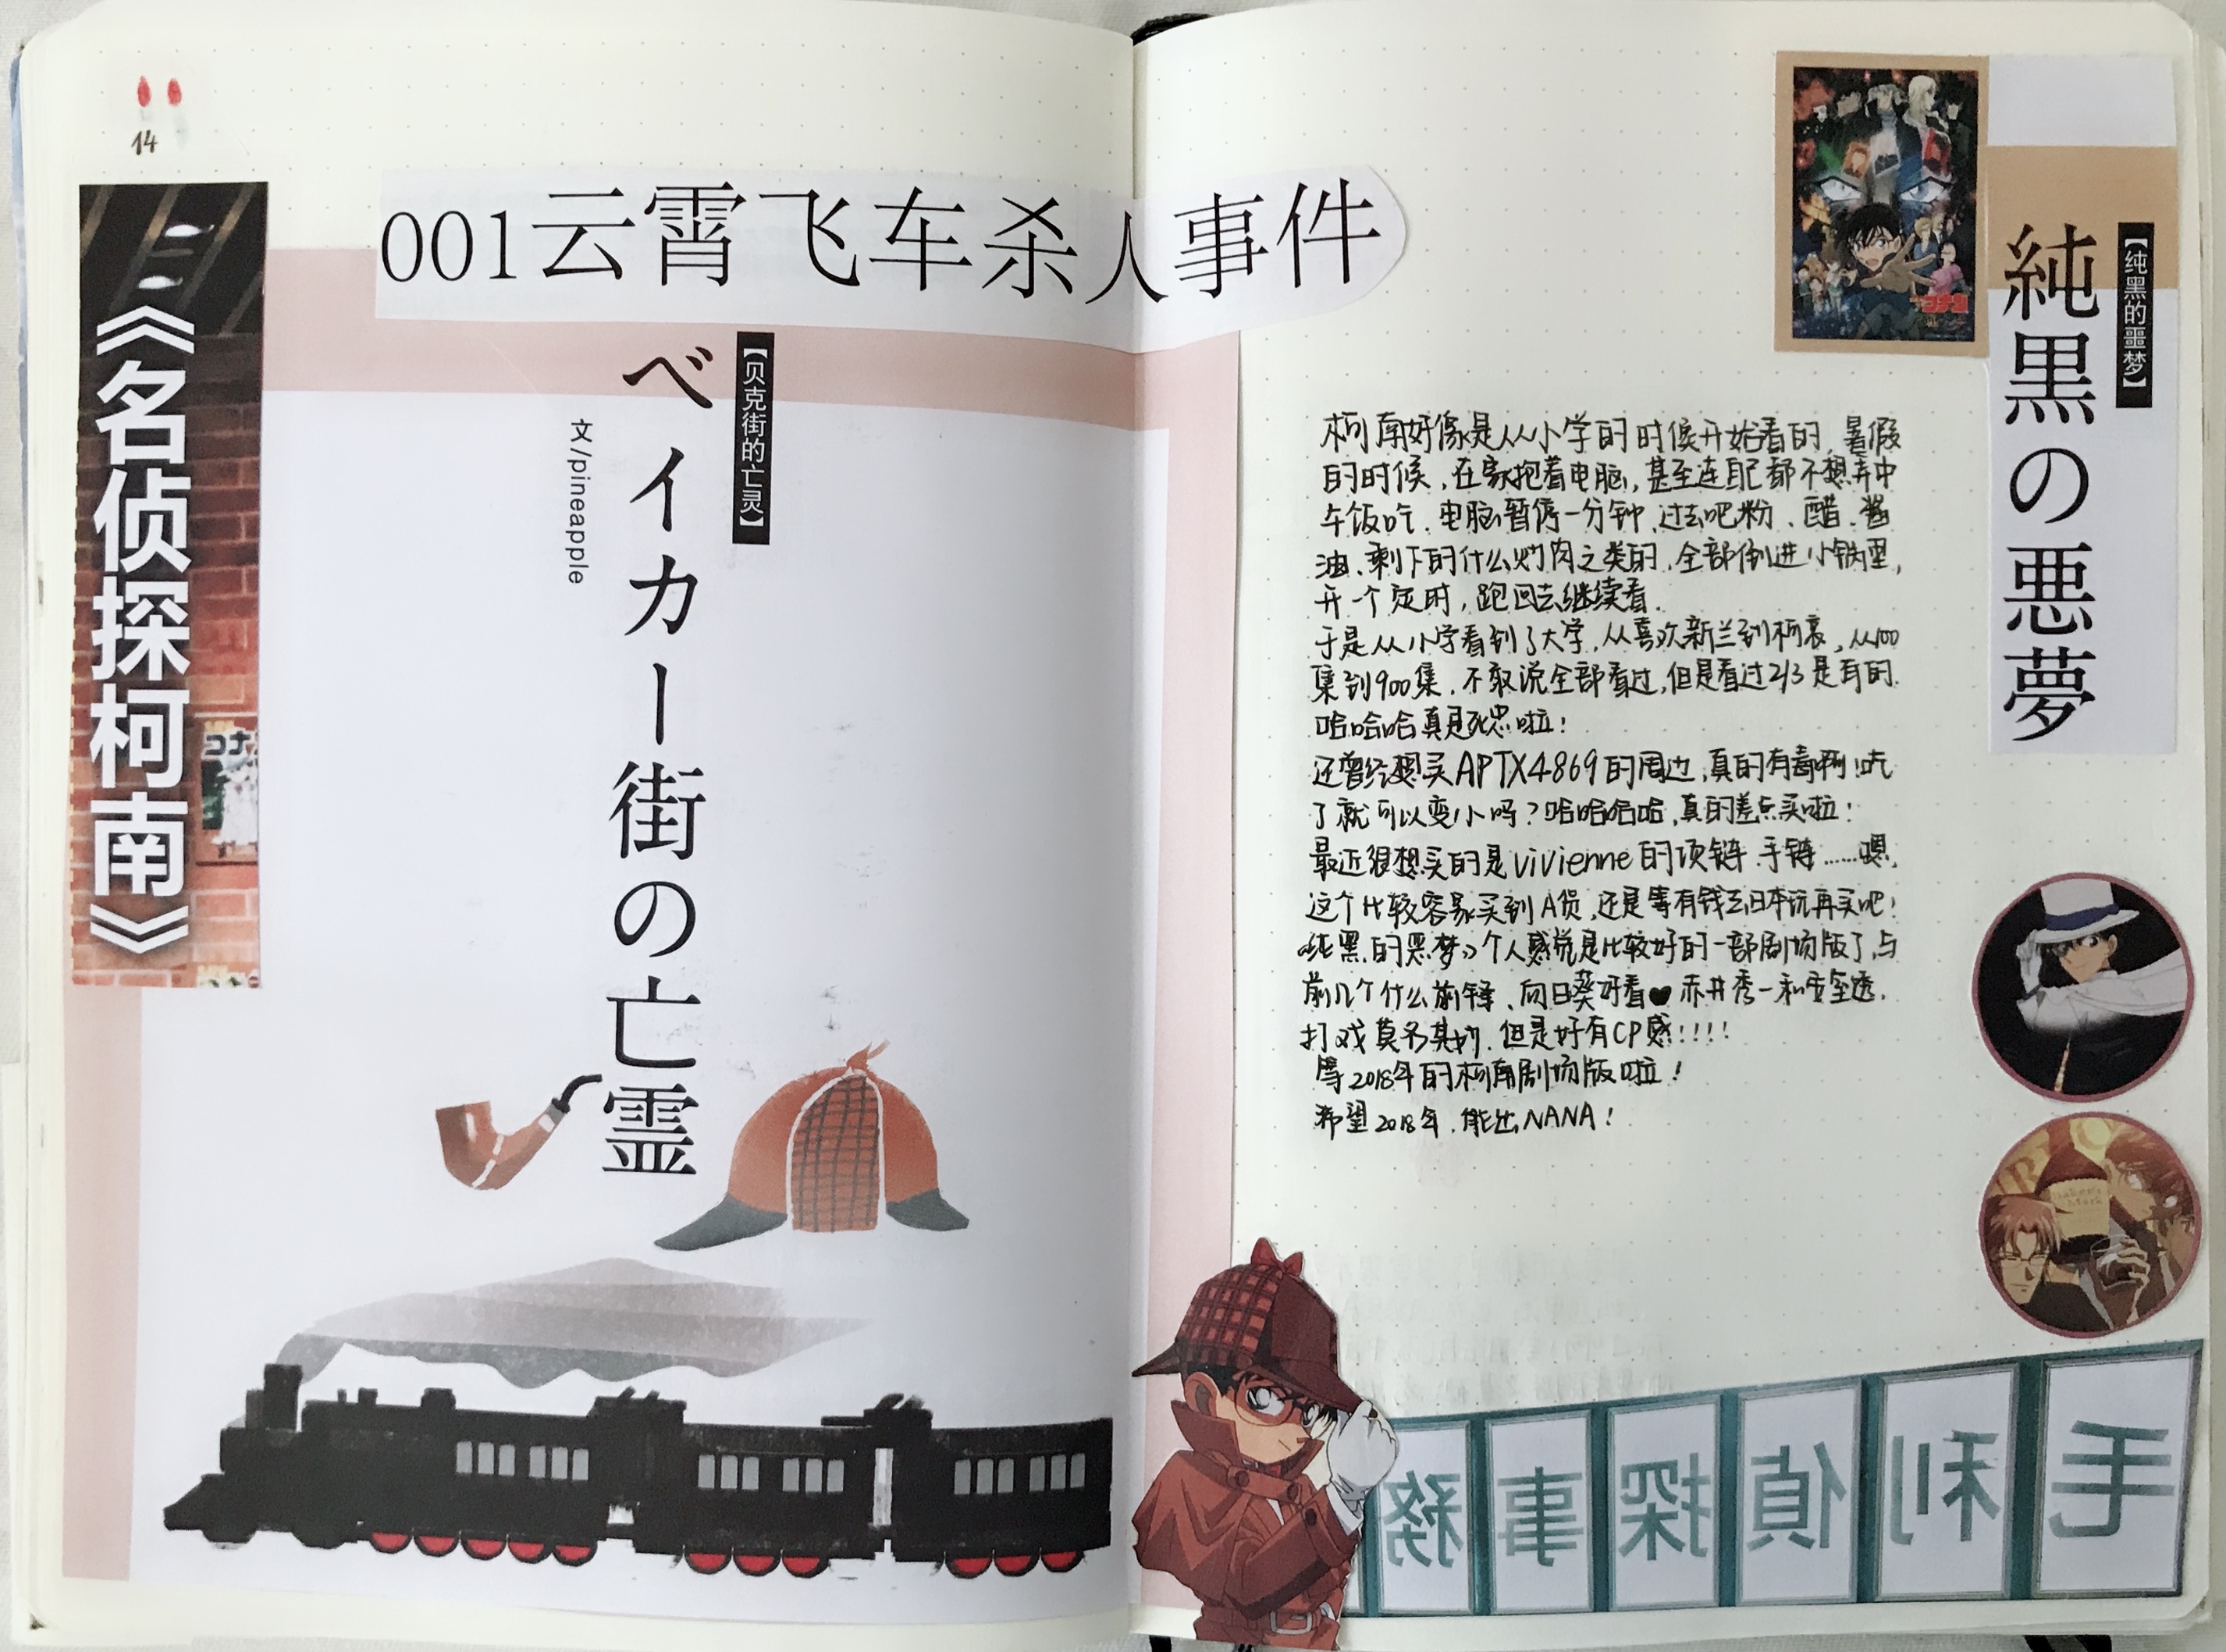 14
《名侦探柯南》
001云霄飞车杀人事件
【贝克街的亡灵】
ベイカー街の亡霊
文/pineapple
【纯黑的噩梦】
純黒の悪夢
柯南好像是从小学的时候开始看的,暑假
的时候,在家抱着电脑,甚至连自己都不想弄中
午饭吃.电脑暂停一分钟,过去吧粉、醋、酱
油、剩下的什么炒肉之类的,全部倒进小锅里,
开一个定时,跑回去继续看.
于是从小学看到了大学,从喜欢新兰到柯哀,从100
集到900集.不敢说全部看过,但是看过2/3是有的.
哈哈哈真是死忠啦!
还曾经想买APTX4869的周边,真的有毒啊!吃
了就可以变小吗?哈哈哈哈,真的差点买啦!
最近很想买的是Vivienne的项链.手链……嗯,
这个比较容易买到A货,还是等有钱去日本玩再买吧!
《纯黑的恶梦》个人感觉是比较好的一部剧场版了,与
前几个什么前锋、向日葵好看♥赤井秀一和安室透,
打戏莫名其妙.但是好有CP感!!!!
等2018年的柯南剧场版啦!
希望2018年.能出NANA!
コナン
毛利偵探事務